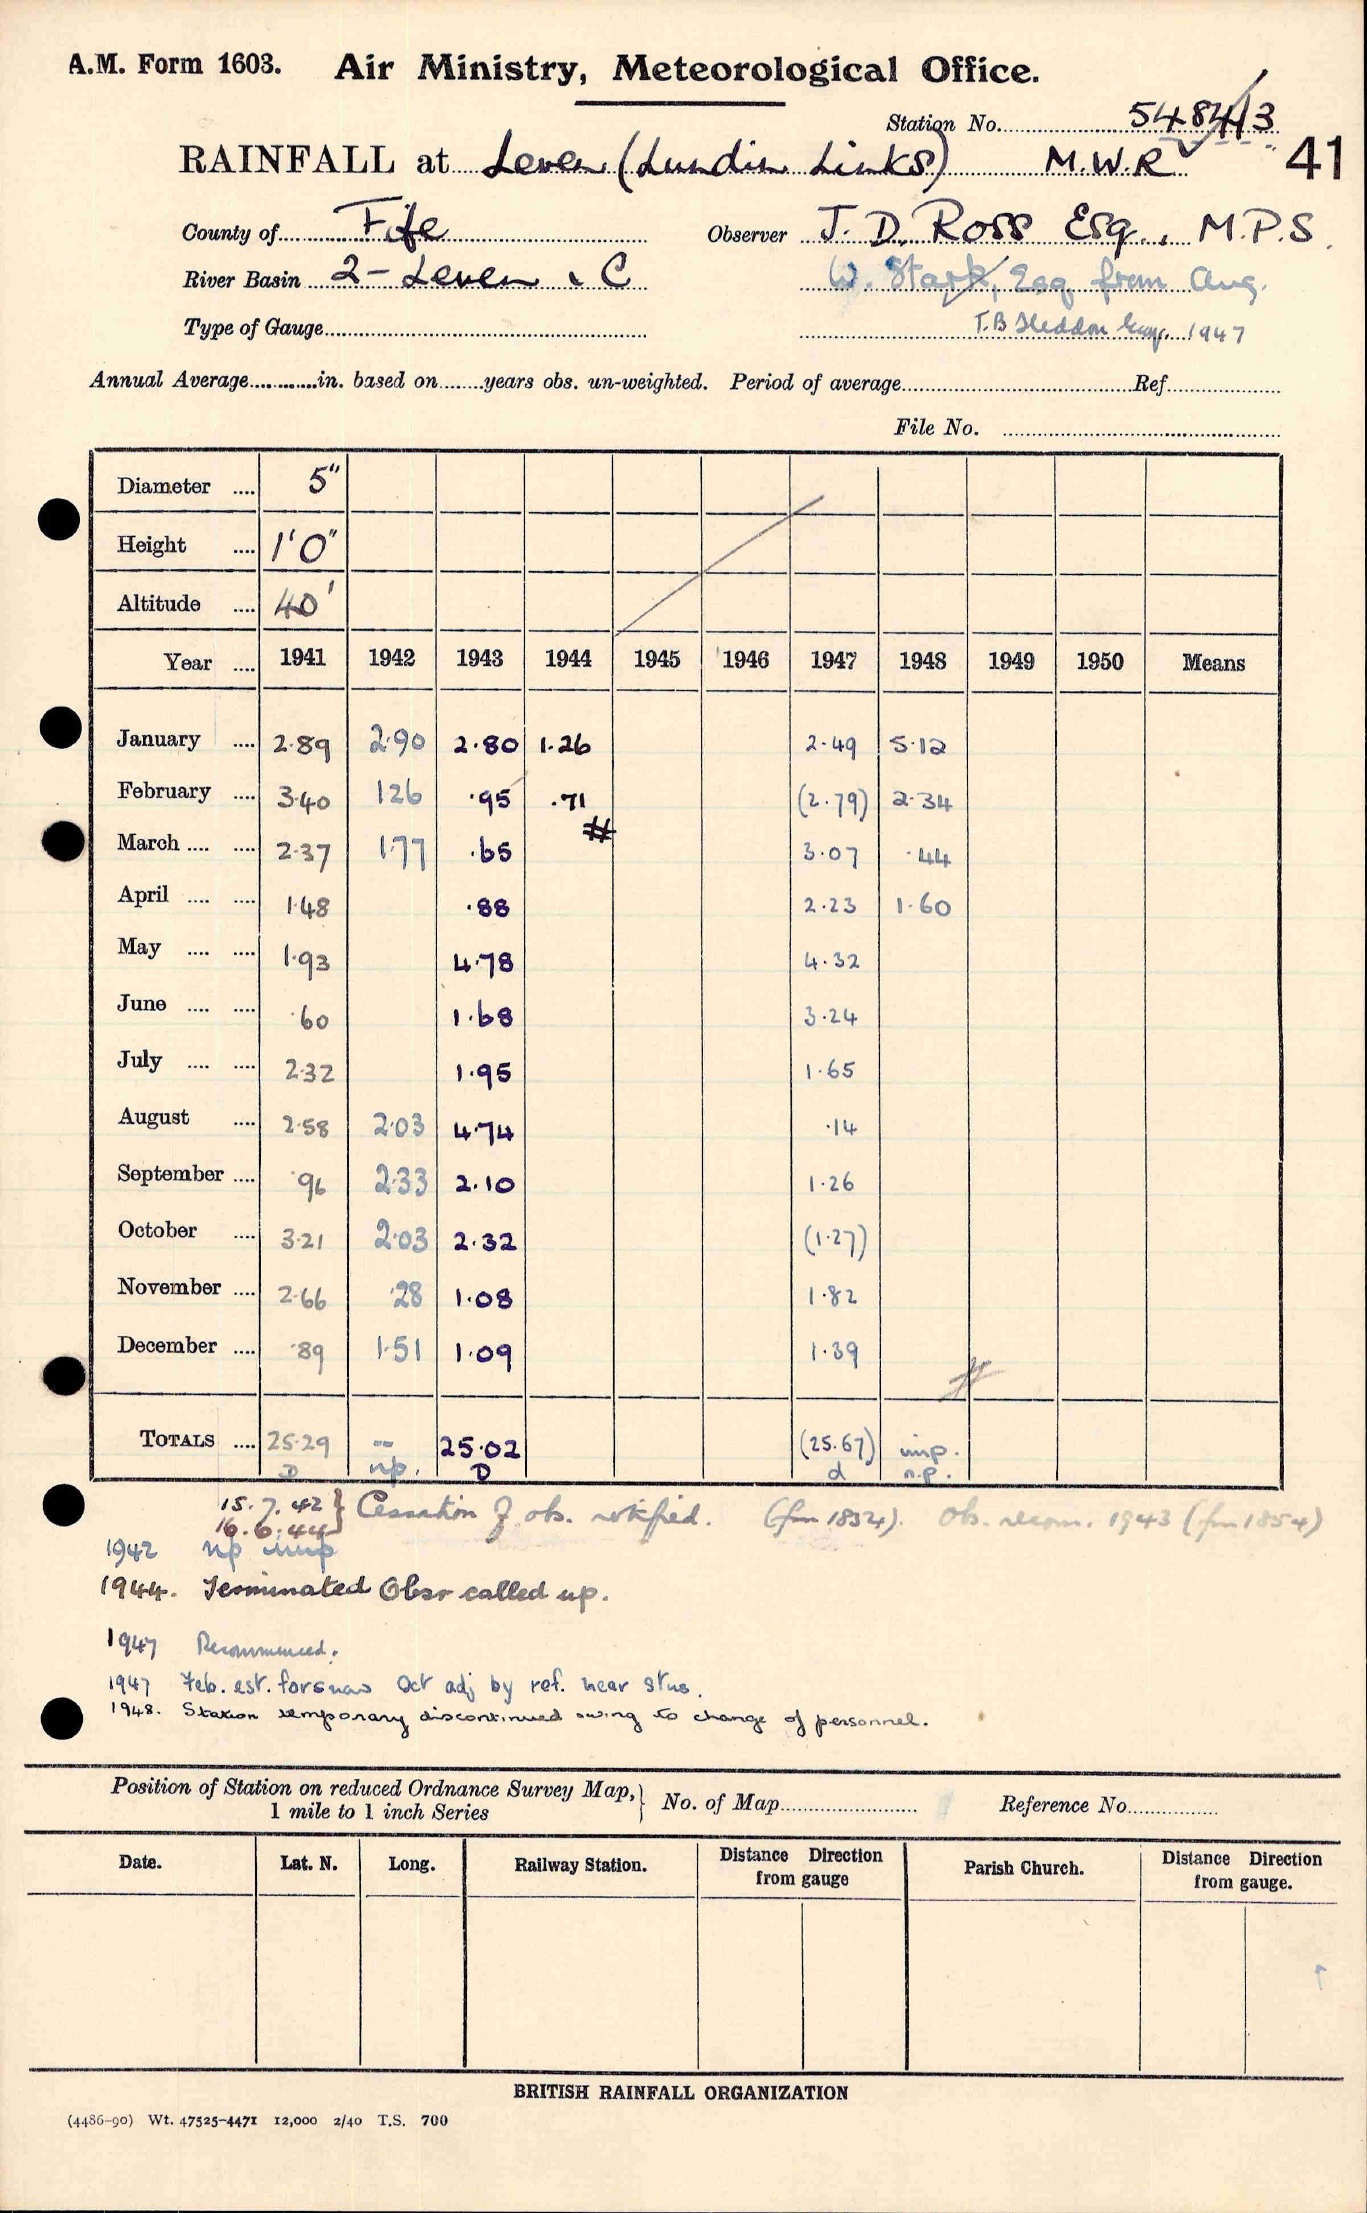 A.M. Form 1603. Air Ministry, Meteorological Office.
Station No. 548413
RAINFALL at Leven (Lundin Links) M.W.R 41
County of Fife Observer J. D. Ross Esq., M.P.S.
River Basin 2 - Leven . C W. Stark, Esq from Aug.
Type of Gauge T.B Heddon Esq. 1947
Annual Average in. based on years obs. un-weighted. Period of average Ref
File No.
Diameter .... 5"
Height .... 1'0"
Altitude .... 40'
Year .... 1941 1942 1943 1944 1945 1946 1947 1948 1949 1950 Means
January .... 2.89 2.90 2.80 1.26 2.49 5.12
February .... 3.40 1.26 .95 .71 (2.79) 2.34
March .... .... 2.37 1.77 .65 3.07 .44
April .... .... 1.48 .88 2.23 1.60
May .... .... 1.93 4.78 4.32
June .... .... .60 1.68 3.24
July .... .... 2.32 1.95 1.65
August .... 2.58 2.03 4.74 .14
September .... .96 2.33 2.10 1.26
October .... 3.21 2.03 2.32 (1.27)
November .... 2.66 .28 1.08 1.82
December .... .89 1.51 1.09 1.39
TOTALS .... 25.29 -- 25.02 (25.67) imp.
D np. D d n.p.
15.7.42 } Cessation of obs. notified. (fm 1854). Ob. recom. 1943 (fm 1854)
16.6.44
1942 np imp
1944. Terminated Obsr called up.
1947 Recommenced.
1947 Feb. est. for snow Oct adj by ref. near stns.
1948. Station temporary discontinued owing to change of personnel.
Position of Station on reduced Ordnance Survey Map, } No. of Map Reference No.
1 mile to 1 inch Series
Date. Lat. N. Long. Railway Station. Distance Direction from gauge Parish Church. Distance Direction from gauge.
BRITISH RAINFALL ORGANIZATION
(4486-90) Wt. 47525-4471 12,000 2/40 T.S. 700